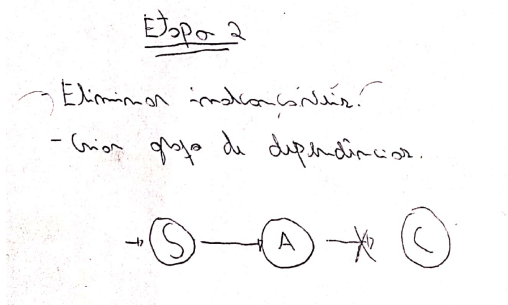 Etapa 2
- Eliminar inalcançáveis.
- Criar grafo de dependências.
S A C